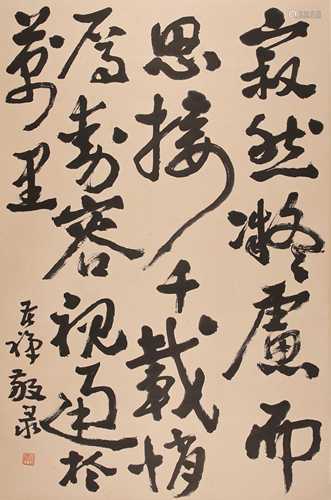 寂然凝慮而
思接千載悄
焉動容視通於
萬里
敬录